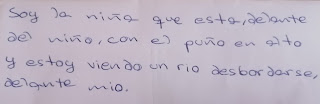 Soy la niña que esta, delante
del niño, con el puño en alto
y estoy viendo un rio desbordarse,
delante mio.